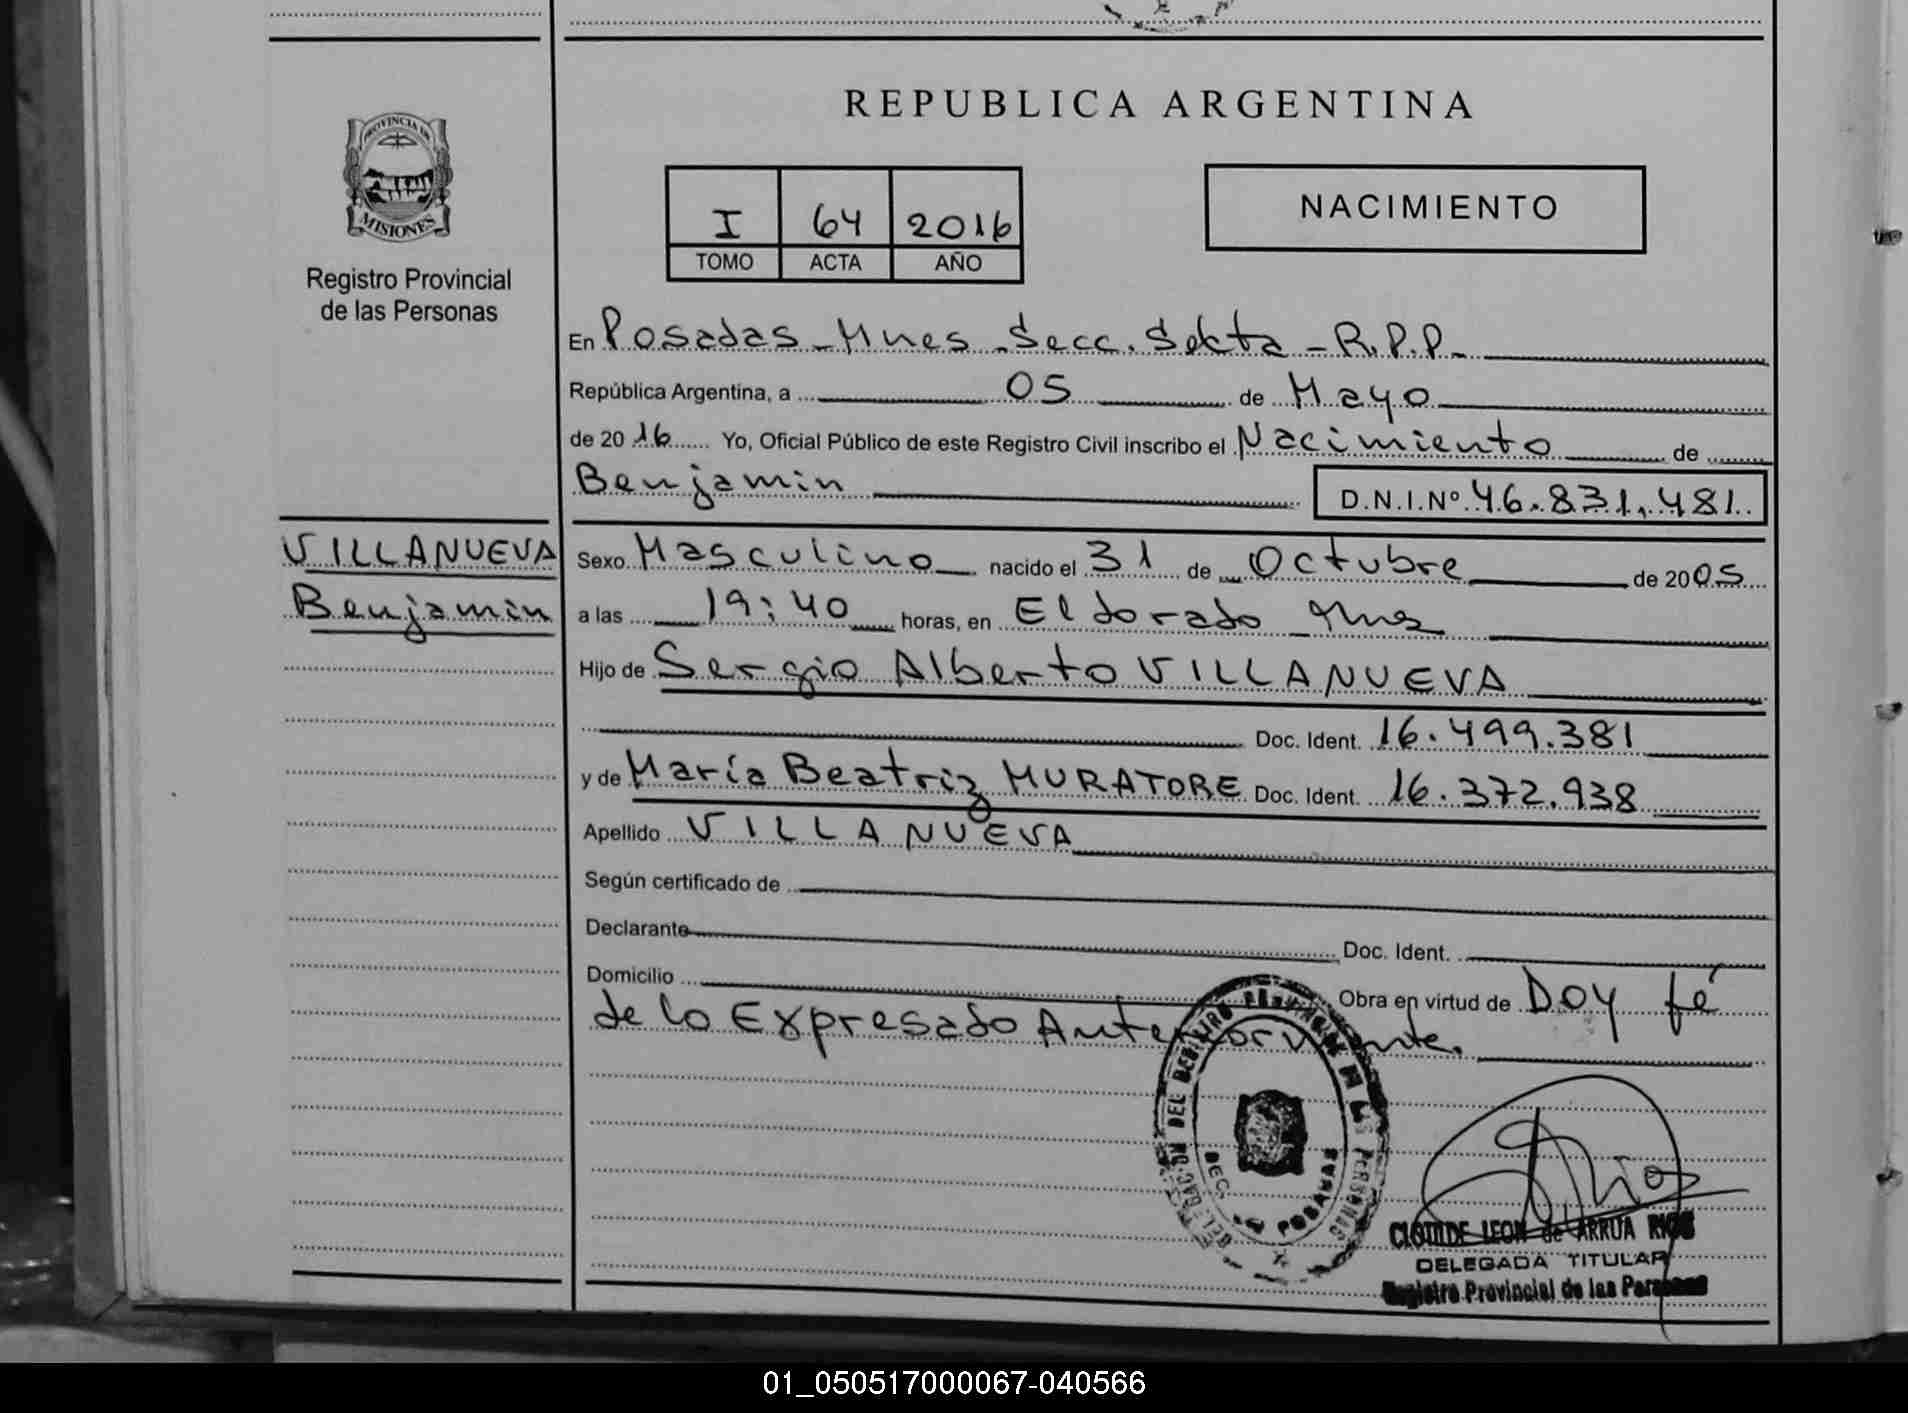 PROVINCIA DE
MISIONES
Registro Provincial
de las Personas
VILLANUEVA
Benjamin
REPUBLICA ARGENTINA
I 64 2016
TOMO ACTA AÑO
NACIMIENTO
En Posadas - Mnes - Secc. Sexta - R.P.P.
República Argentina, a 05 de Mayo
de 2016 Yo, Oficial Público de este Registro Civil inscribo el Nacimiento de
Benjamin D.N.I.Nº 46.831.481
Sexo Masculino nacido el 31 de Octubre de 2005
a las 19:40 horas, en Eldorado Mnes
Hijo de Sergio Alberto VILLANUEVA
Doc. Ident. 16.499.381
y de María Beatriz MURATORE Doc. Ident. 16.372.938
Apellido VILLANUEVA
Según certificado de
Declarante Doc. Ident.
Domicilio
Obra en virtud de Doy fé
de lo Expresado Anteriormente.
POSADAS
CLOTILDE LEON de ARRUA RIOS
DELEGADA TITULAR
Registro Provincial de las Personas
01_050517000067-040566